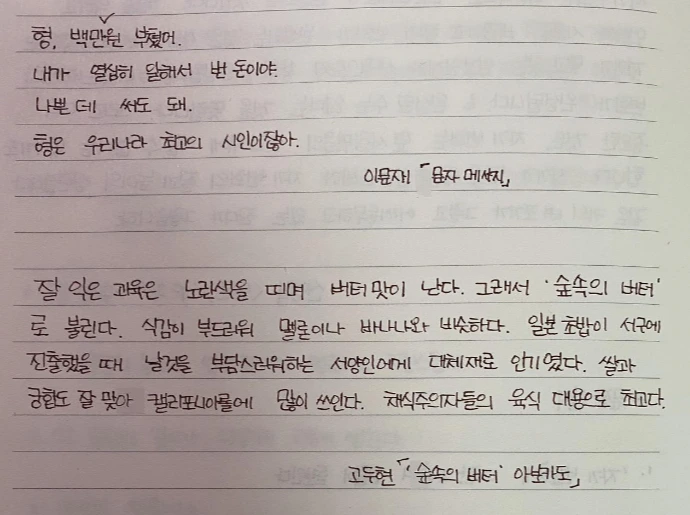 형, 백만원 부쳤어.
내가 열심히 일해서 번 돈이야.
나쁜 데 써도 돼.
형은 우리나라 최고의 시인이잖아.
이문재 「문자 메세지」
잘 익은 과육은 노란색을 띠며 버터맛이 난다. 그래서 '숲속의 버터'
로 불린다. 식감이 부드러워 멜론이나 바나나와 비슷하다. 일본 초밥이 서구에
진출했을 때 날것을 부담스러워하는 서양인에게 대체재로 인기였다. 쌀과
궁합도 잘 맞아 캘리포니아롤에 많이 쓰인다. 채식주의자들의 육식 대용으로 최고다.
고두현 「'숲속의 버터' 아보카도」